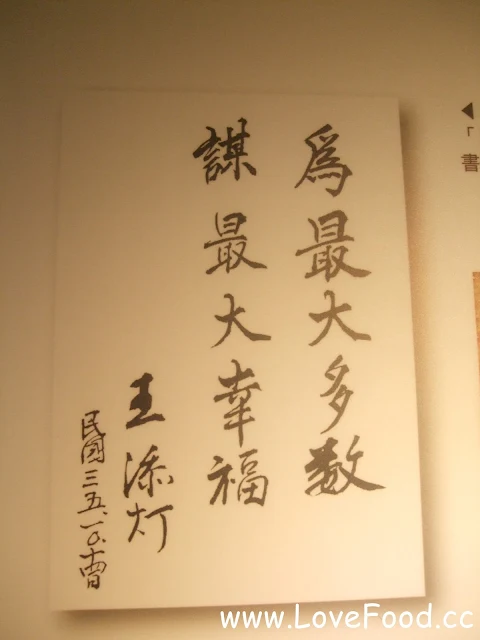 為最大多数
謀最大幸福
王添灯
民國三五、一〇、十四日
◀
「
書
www.LoveFood.cc